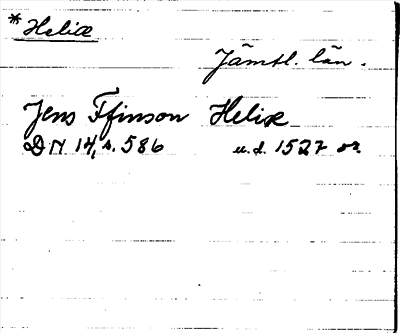 * Heliæ
Jämtl. län.
Jens Ffinson Heliæ
DN 14, s. 586 u.d. 1527 or